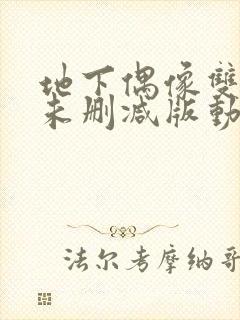 地下偶像雙
未删减版動
法尔考摩纳哥